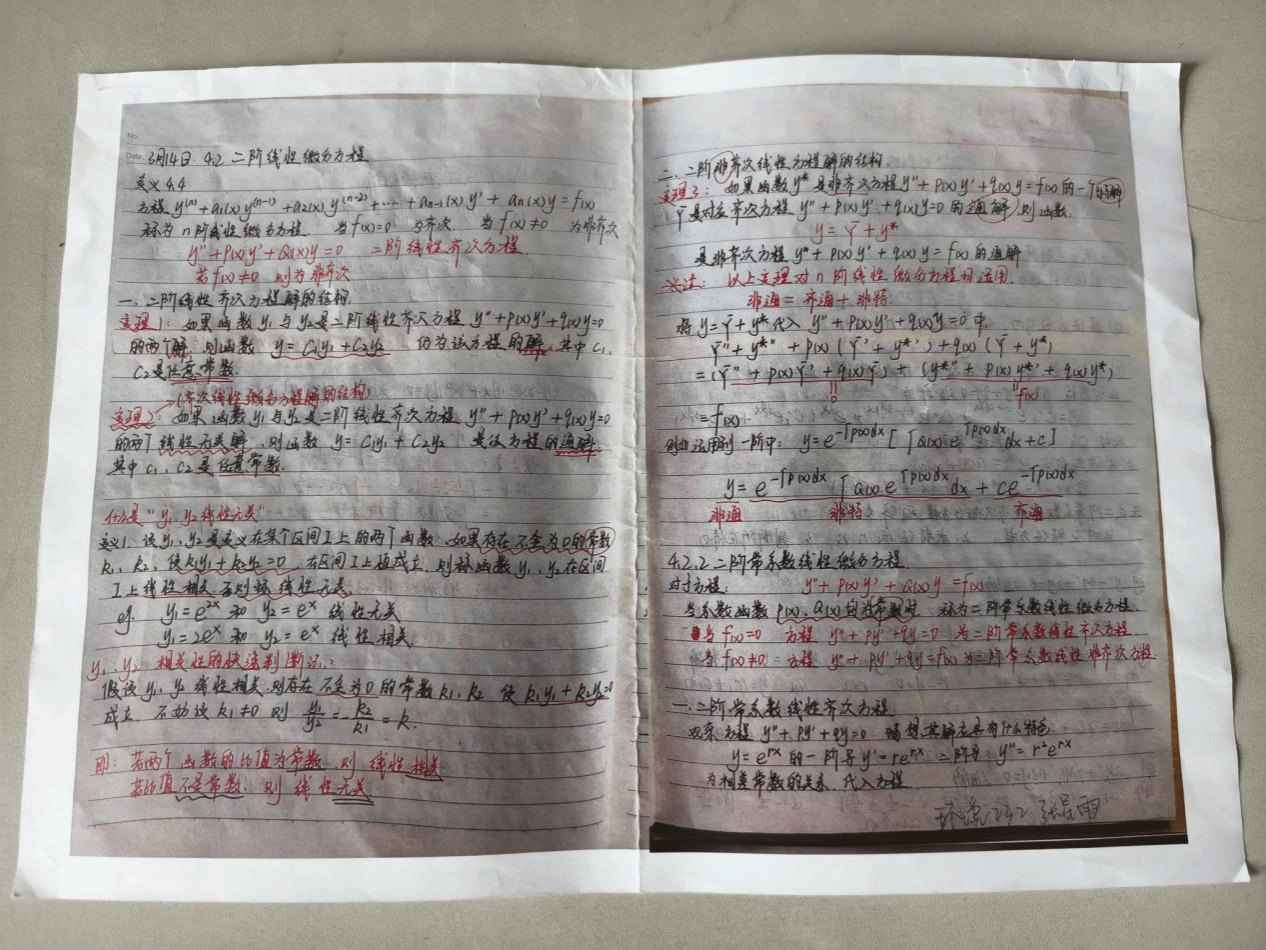 No.
Date. 3月14日 4.2 二阶线性微分方程
定义4.4
方程 y⁽ⁿ⁾+a₁(x)y⁽ⁿ⁻¹⁾+a₂(x)y⁽ⁿ⁻²⁾+…+aₙ₋₁(x)y'+aₙ(x)y=f(x)
称为n阶线性微分方程. 当f(x)=0 为齐次. 当f(x)≠0 为非齐次
y''+P(x)y'+Q(x)y=0 二阶线性齐次方程.
若f(x)≠0 则为非齐次
一、二阶线性齐次方程解的结构.
定理1: 如果函数y₁与y₂是二阶线性齐次方程 y''+p(x)y'+q(x)y=0
的两个解, 则函数 y=C₁y₁+C₂y₂ 仍为该方程的解, 其中C₁,
C₂是任意常数.
(齐次线性微分方程解的结构)
定理2: 如果函数y₁与y₂是二阶线性齐次方程 y''+p(x)y'+q(x)y=0
的两个线性无关解, 则函数 y=C₁y₁+C₂y₂ 是该方程的通解,
其中C₁、C₂是任意常数.
什么是“y₁、y₂线性无关”
定义1. 设y₁、y₂是定义在某个区间I上的两个函数, 如果存在不全为0的常数
k₁、k₂, 使k₁y₁+k₂y₂=0 在区间I上恒成立, 则称函数y₁、y₂在区间
I上线性相关, 否则称线性无关.
eg. y₁=e²ˣ 和 y₂=eˣ 线性无关
y₁=2eˣ 和 y₂=eˣ 线性相关.
y₁、y₂ 相关性的快速判断记:
假设y₁、y₂线性相关, 则存在不全为0的常数k₁、k₂ 使k₁y₁+k₂y₂=0
成立, 不妨设k₁≠0 则 y₁/y₂=-k₂/k₁=k.
即: 若两个函数的比值为常数, 则线性相关
若比值不是常数, 则线性无关
二、二阶非齐次线性方程解的结构.
定理3: 如果函数y*是非齐次方程y''+p(x)y'+q(x)y=f(x)的一个特解
Ȳ是对应齐次方程 y''+p(x)y'+q(x)y=0的通解, 则函数.
y=Ȳ+y*
是非齐次方程 y''+p(x)y'+q(x)y=f(x)的通解
以上定理对n阶线性微分方程均适用.
非通=齐通+非特.
将y=Ȳ+y*代入 y''+p(x)y'+q(x)y=0中.
Ȳ''+y*''+p(x)(Ȳ'+y*')+q(x)(Ȳ+y*)
=(Ȳ''+p(x)Ȳ'+q(x)Ȳ)+(y*''+p(x)y*'+q(x)y*)
‖ ‖
0 f(x)
=f(x)
运用到一阶中: y=e^(-∫p(x)dx)[∫Q(x)e^(∫p(x)dx)dx+c]
y=e^(-∫p(x)dx)∫Q(x)e^(∫p(x)dx)dx+ce^(-∫p(x)dx)
非通 非特 齐通
4.2.2 二阶常系数线性微分方程.
对于方程: y''+P(x)y'+Q(x)y=f(x)
当系数函数P(x)、Q(x)均为常数时, 称为二阶常系数线性微分方程.
当f(x)=0 方程 y''+py'+qy=0 为二阶常系数线性齐次方程
当f(x)≠0 方程 y''+py'+qy=f(x)为二阶常系数线性非齐次方程
一、二阶常系数线性齐次方程
观察方程 y''+py'+qy=0 猜想其解应具有什么特色
y=e^(rx)的一阶导y'=re^(rx) 二阶导: y''=r²e^(rx)
为相差常数的关系, 代入方程.
232